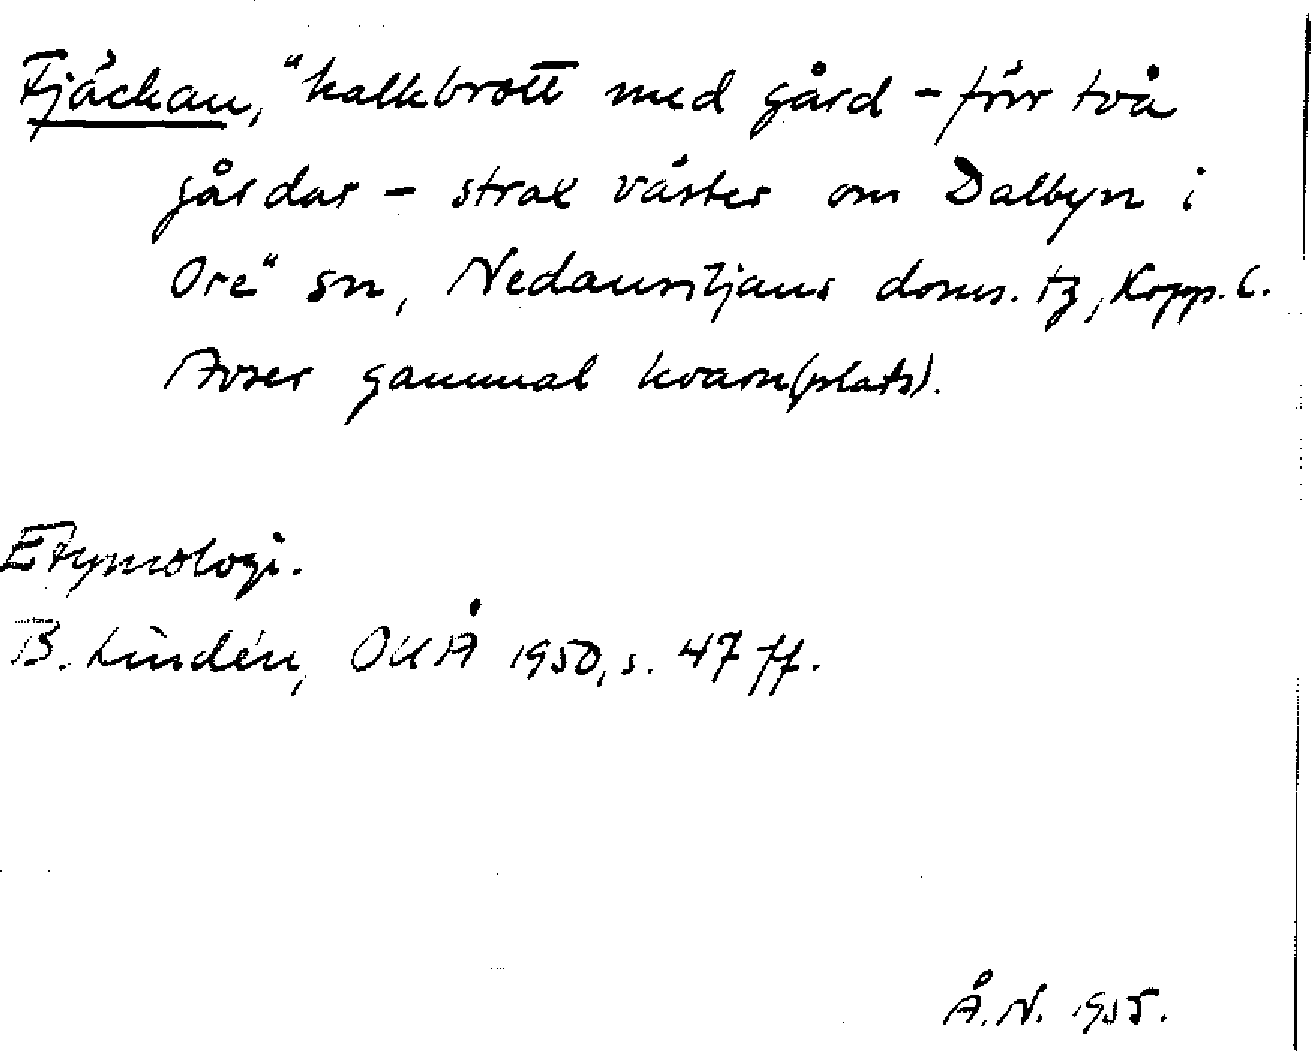 Fjäckan, "kalkbrott med gård – förr två
gårdar – strax väster om Dalbyn i
Ore" sn, Nedansiljans doms. tg, Kopp. l.
Avser gammal kvarn(plats).
Etymologi.
B. Lindén, OUÅ 1950, s. 47 ff.
Å.N. 1955.